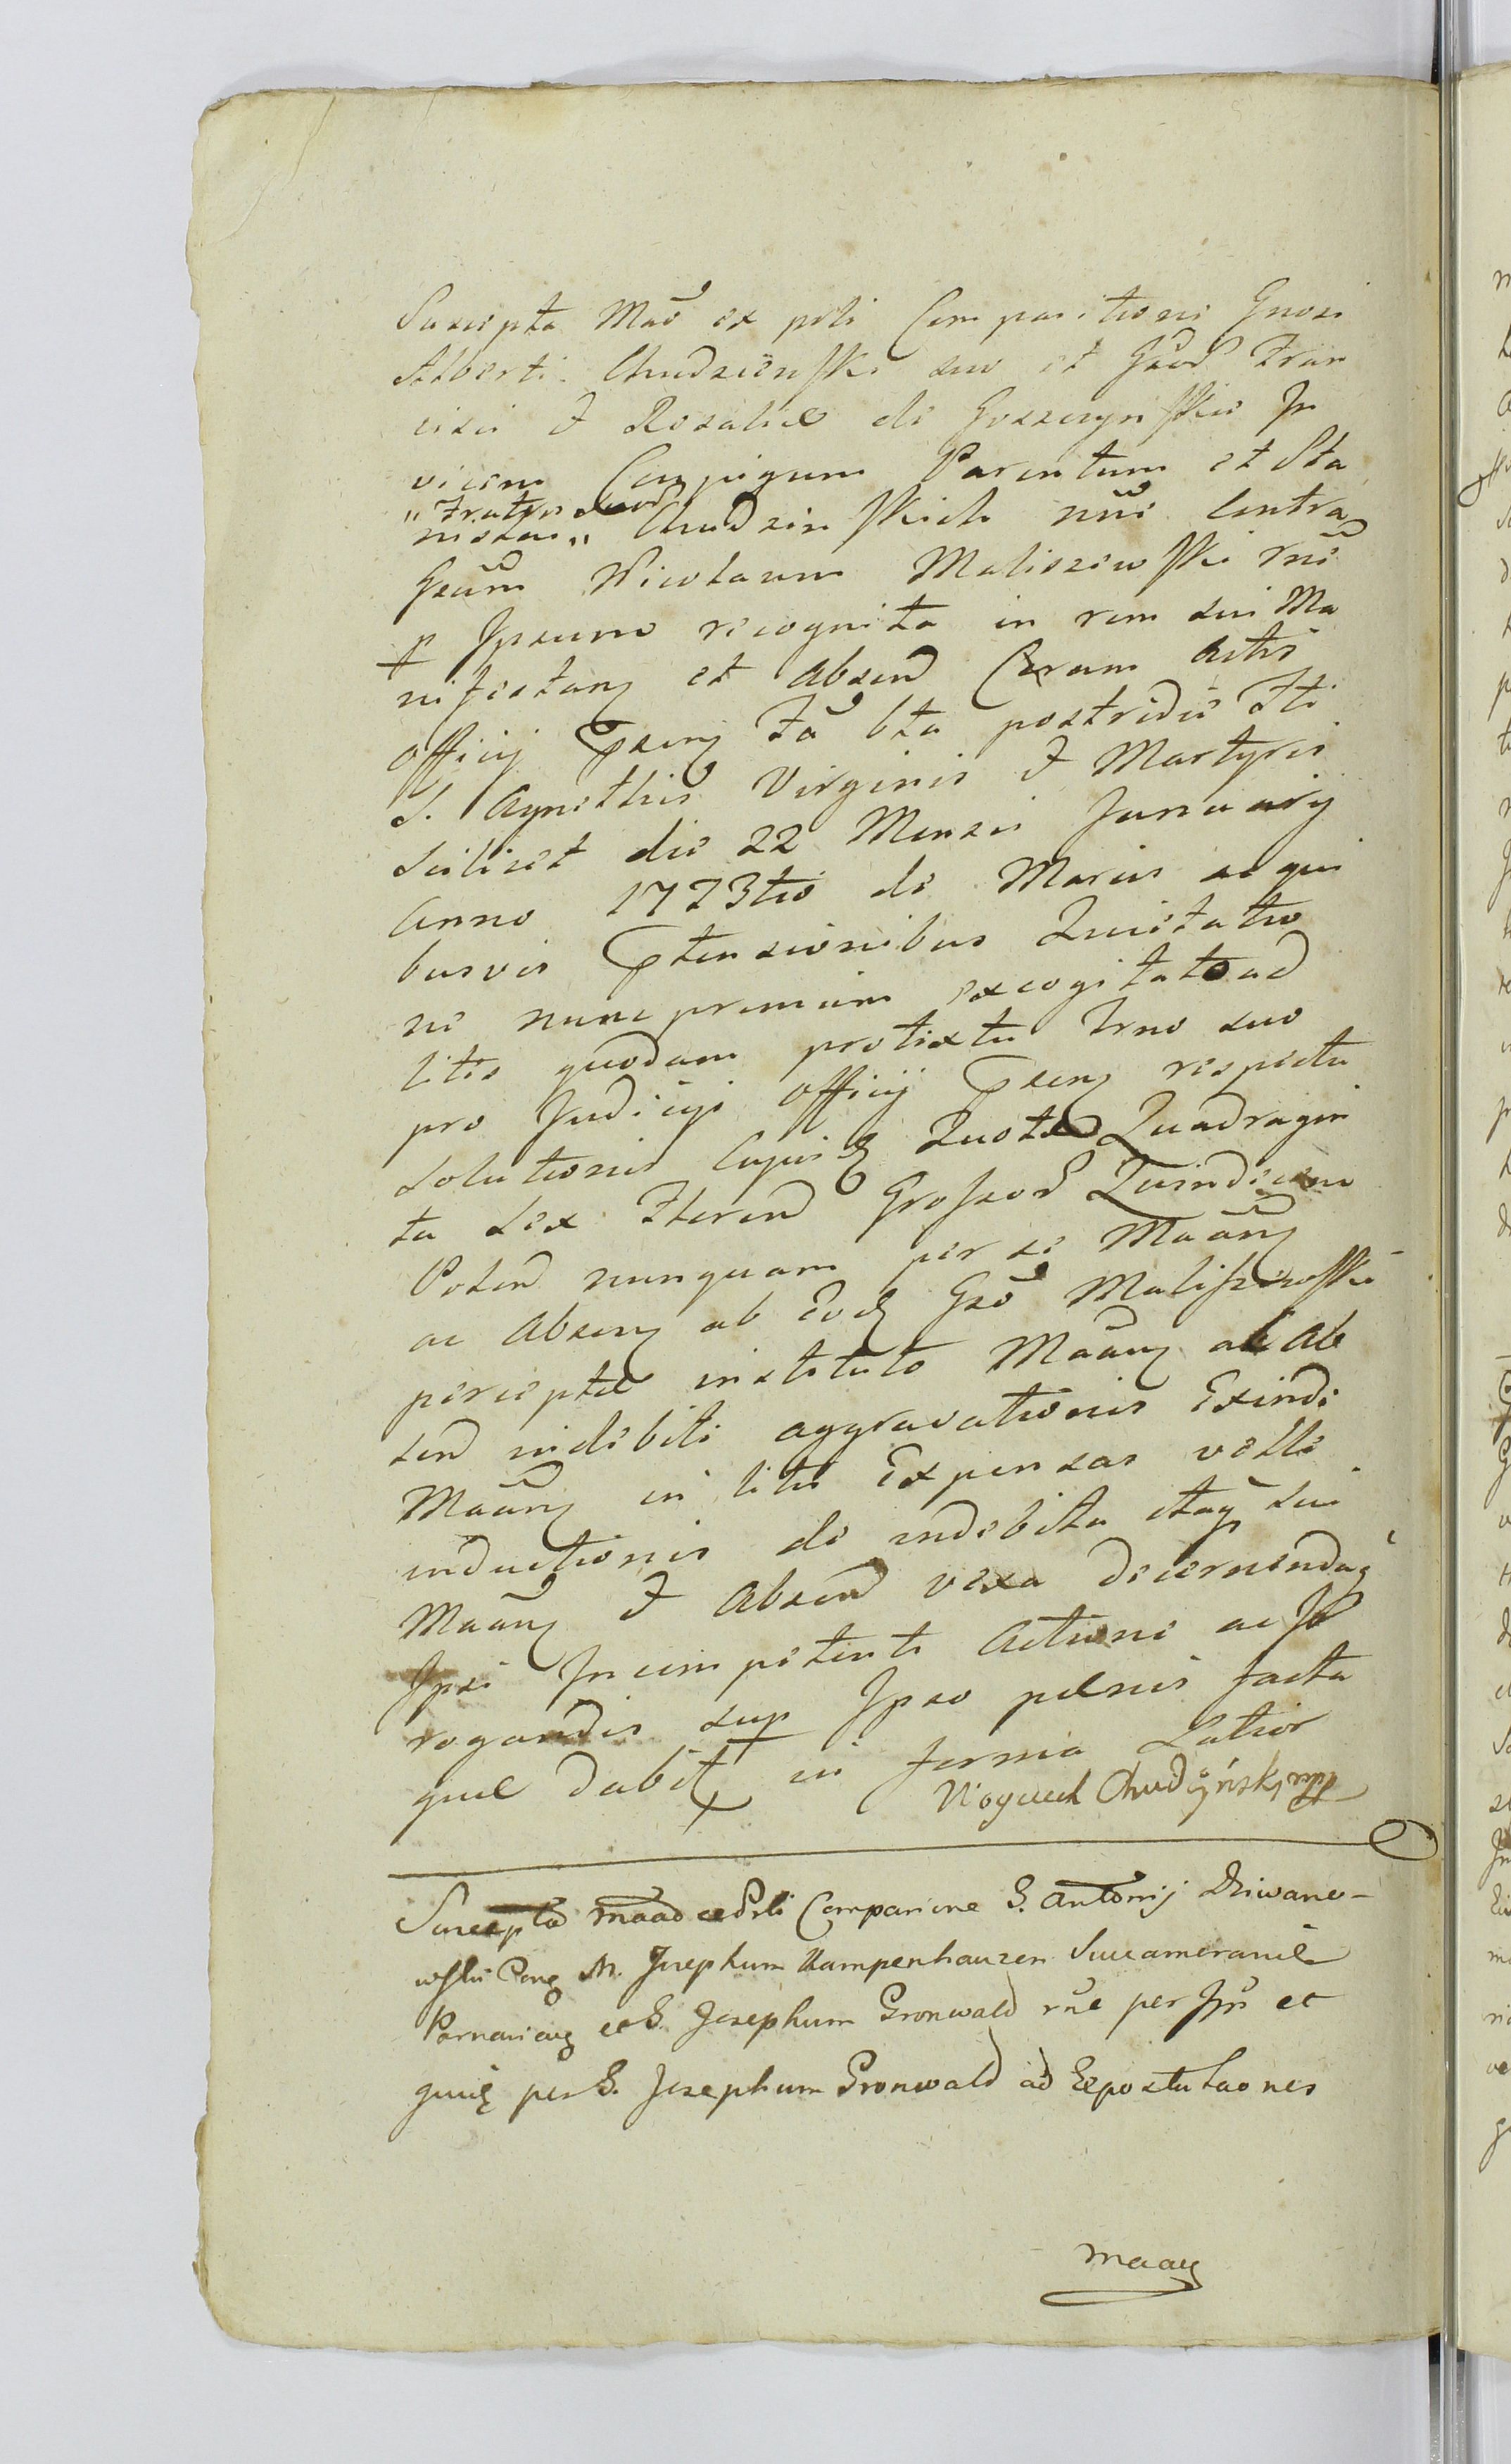 Suscepta Mãõ ex psti Comparitione Gnosi
Alberti Chudzieńsky suo et Gsod Fran
cisci & Rosaliæ de Goszczynskie In
vicem Conjugum Parentum et Sta
"Fratris
nislai" Chudzinskich nũẽ Contra
Gsum Nicolaum Maliszewski rnẽ
p Ipsum recognita in rem sui Ma
nifestanꝫ et Absend Coram Actis
Officij Psenꝫ Fã bta postridiẽ Fti
S. Agnethis Virginis & Martyris
Scilicet die 22 Mensis January
Anno 1773tio de Marcis ac qui
busvis Ptensionibus Quietatio
ne nunc primum excogitato ad
litis quodam protextu Trno suo
pro Judicijs Officij Psenꝫ respectu
Solutionis Cujusꝫ Quotæ Quadragin
ta Sex Florend Grossod Quindecim
Polend nunquam per se Mãanꝫ
ac Absenꝫ ab Eodꝫ Gsõ Maliszewski
perceptæ instituto Mãanꝫ ac Ab
send indebiti aggravationis Exinde
Mãanꝫ in litis Expensas velle
inductionis de indebita itaqꝫ sui
Mãanꝫ & Absend vexa decernendaqꝫ
Ipsi Incompetenti Actione ac Ir
rogandis sup Ipso pænis facta
quæ dabitꝫ in forma Latior
Woyciech Chudzyński mpp
Suscepta Maad ex Psti Comparine G. Antonij Dziwano-
wski Conꝫ M. Josephum Kampenhauzen Succamerariũ
Parnavienꝫ et G. Josephum Gronwald rñe per Ips et
quiꝫ per G. Josephum Gronwald ad Expostulaones
Maaꝫ